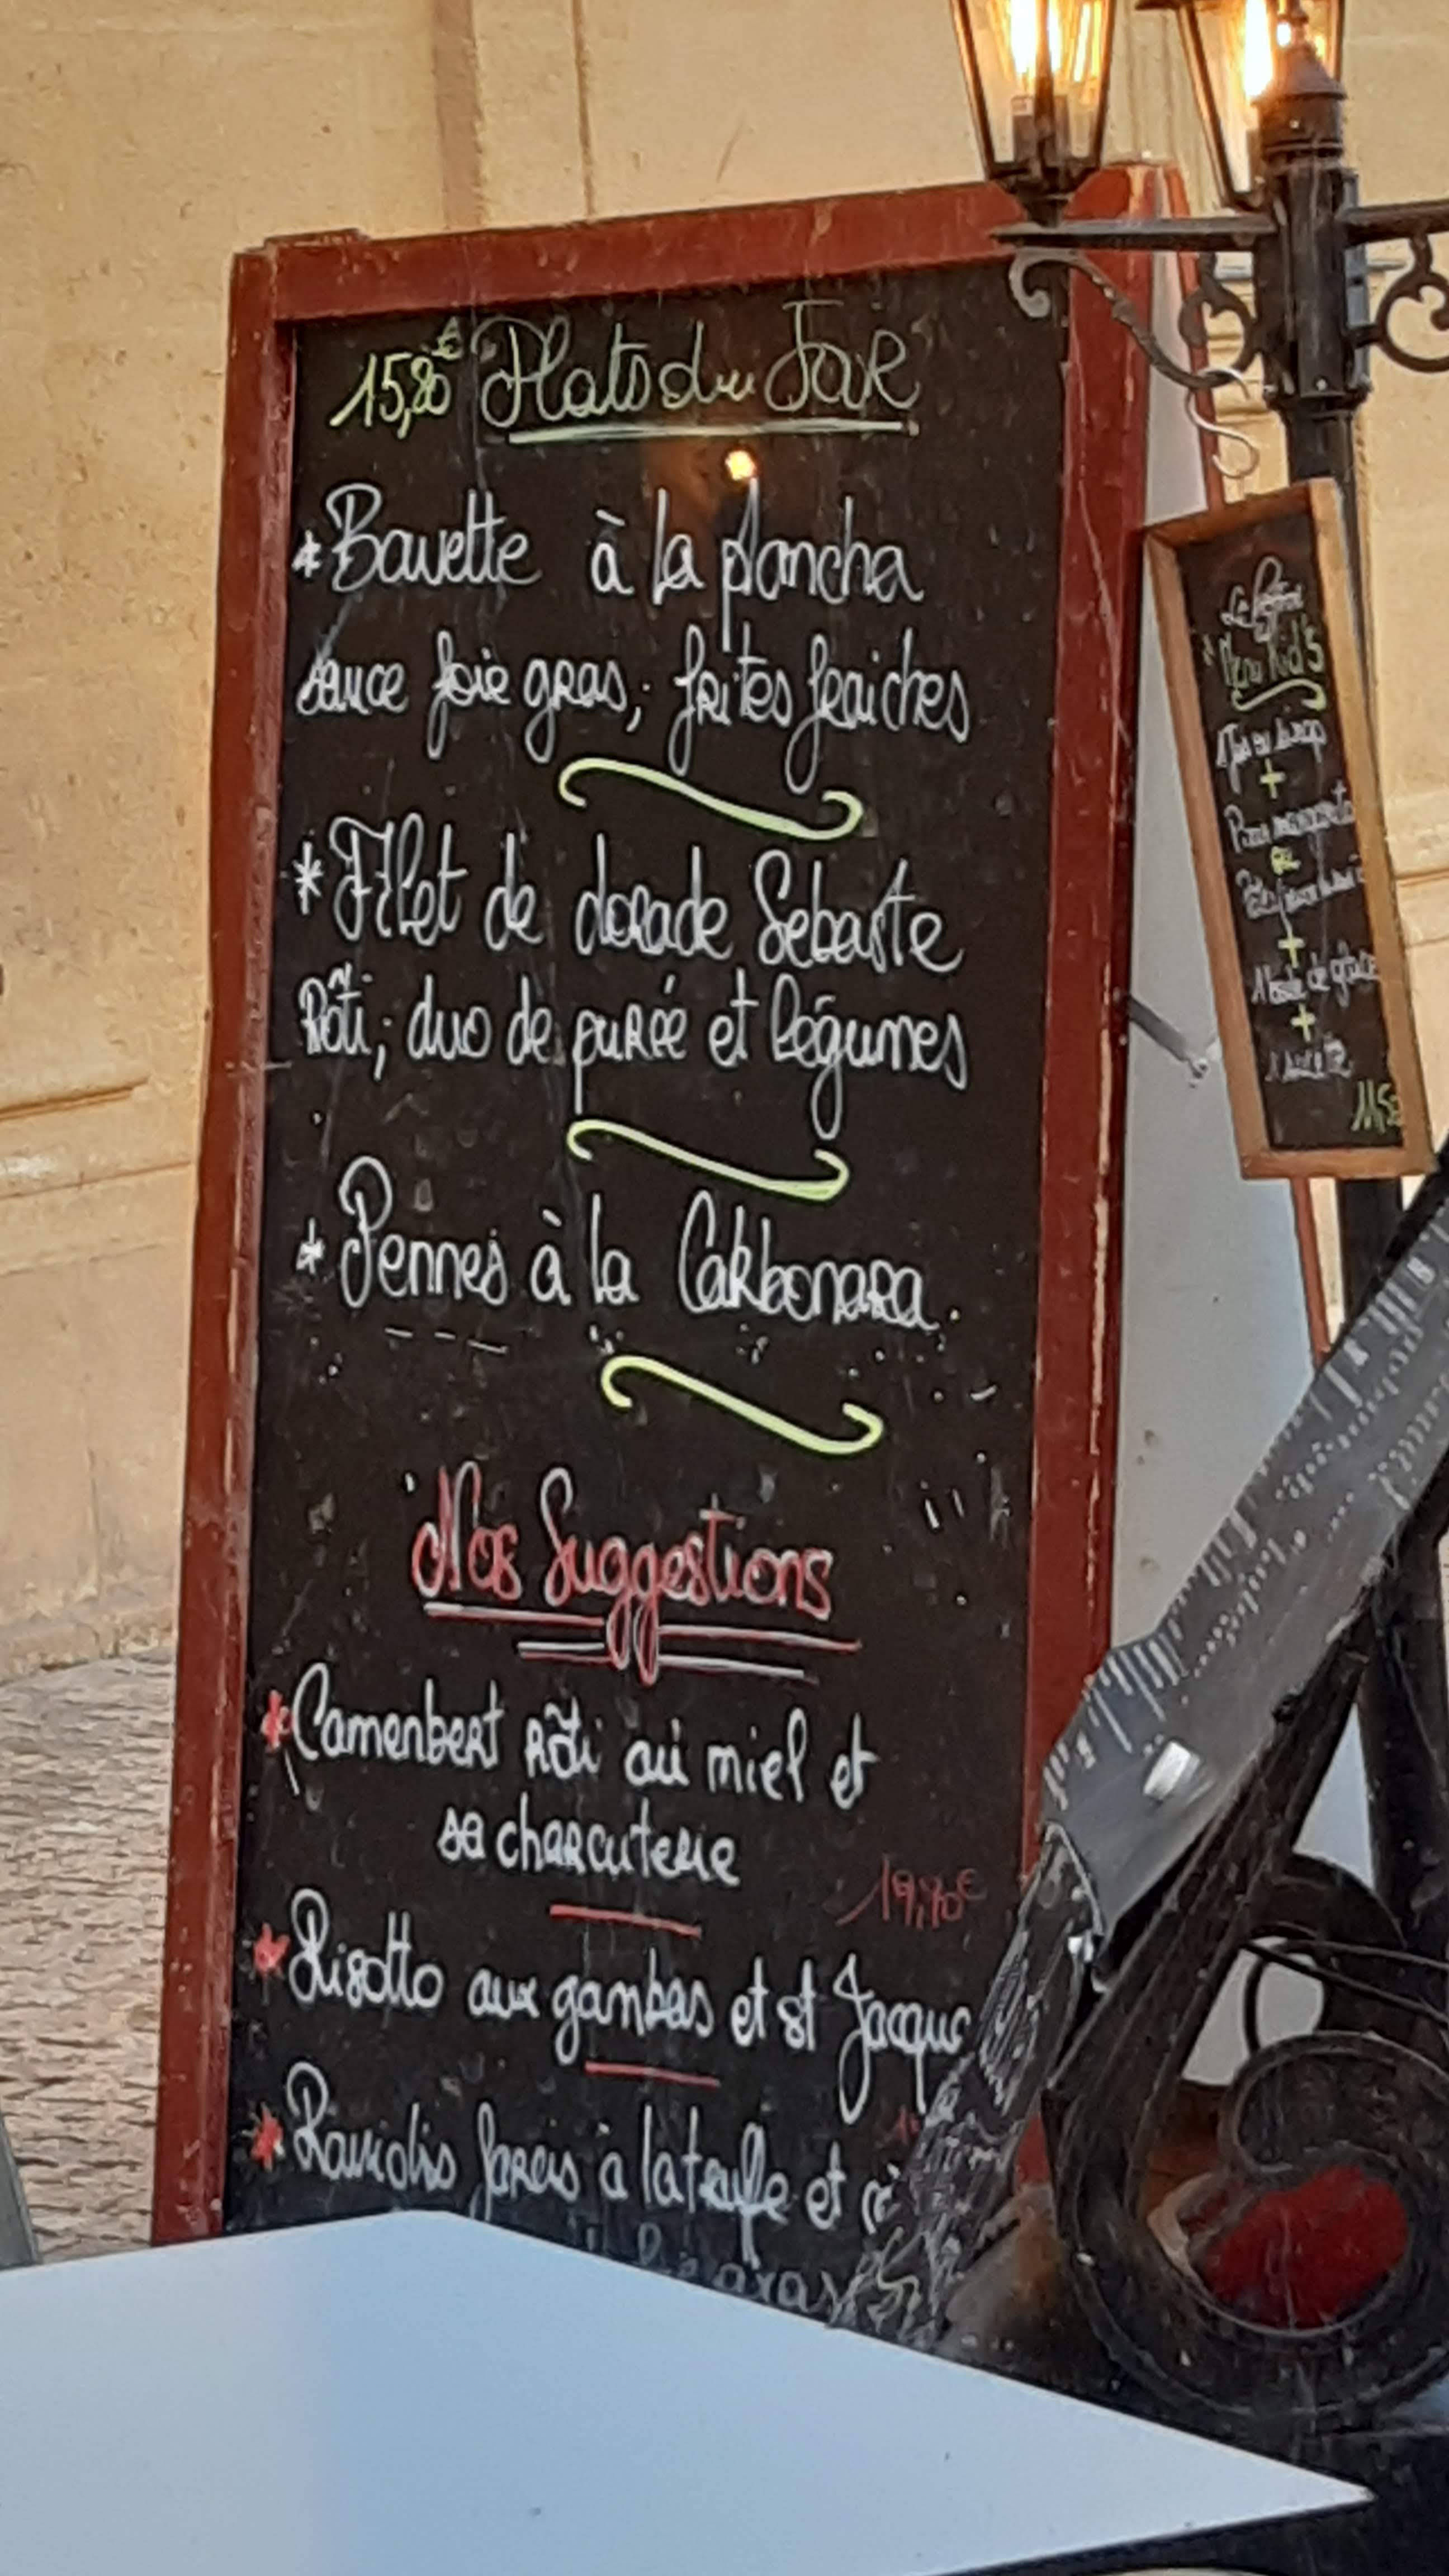 15,80€ Plats du Jour
* Bavette à la plancha
sauce foie gras; frites fraiches
* Filet de dorade Sebaste
Rôti; duo de purée et légumes
* Pennes à la Carbonara.
Nos Suggestions
* Camenbert rôti au miel et
sa charcuterie
19,90€
* Risotto aux gambas et st Jacque
* Raviolis farcis à la truffe et
Menu Kid's
+
Pizza
ou
+
1 boule de glace
+
1 sucette
11,5€